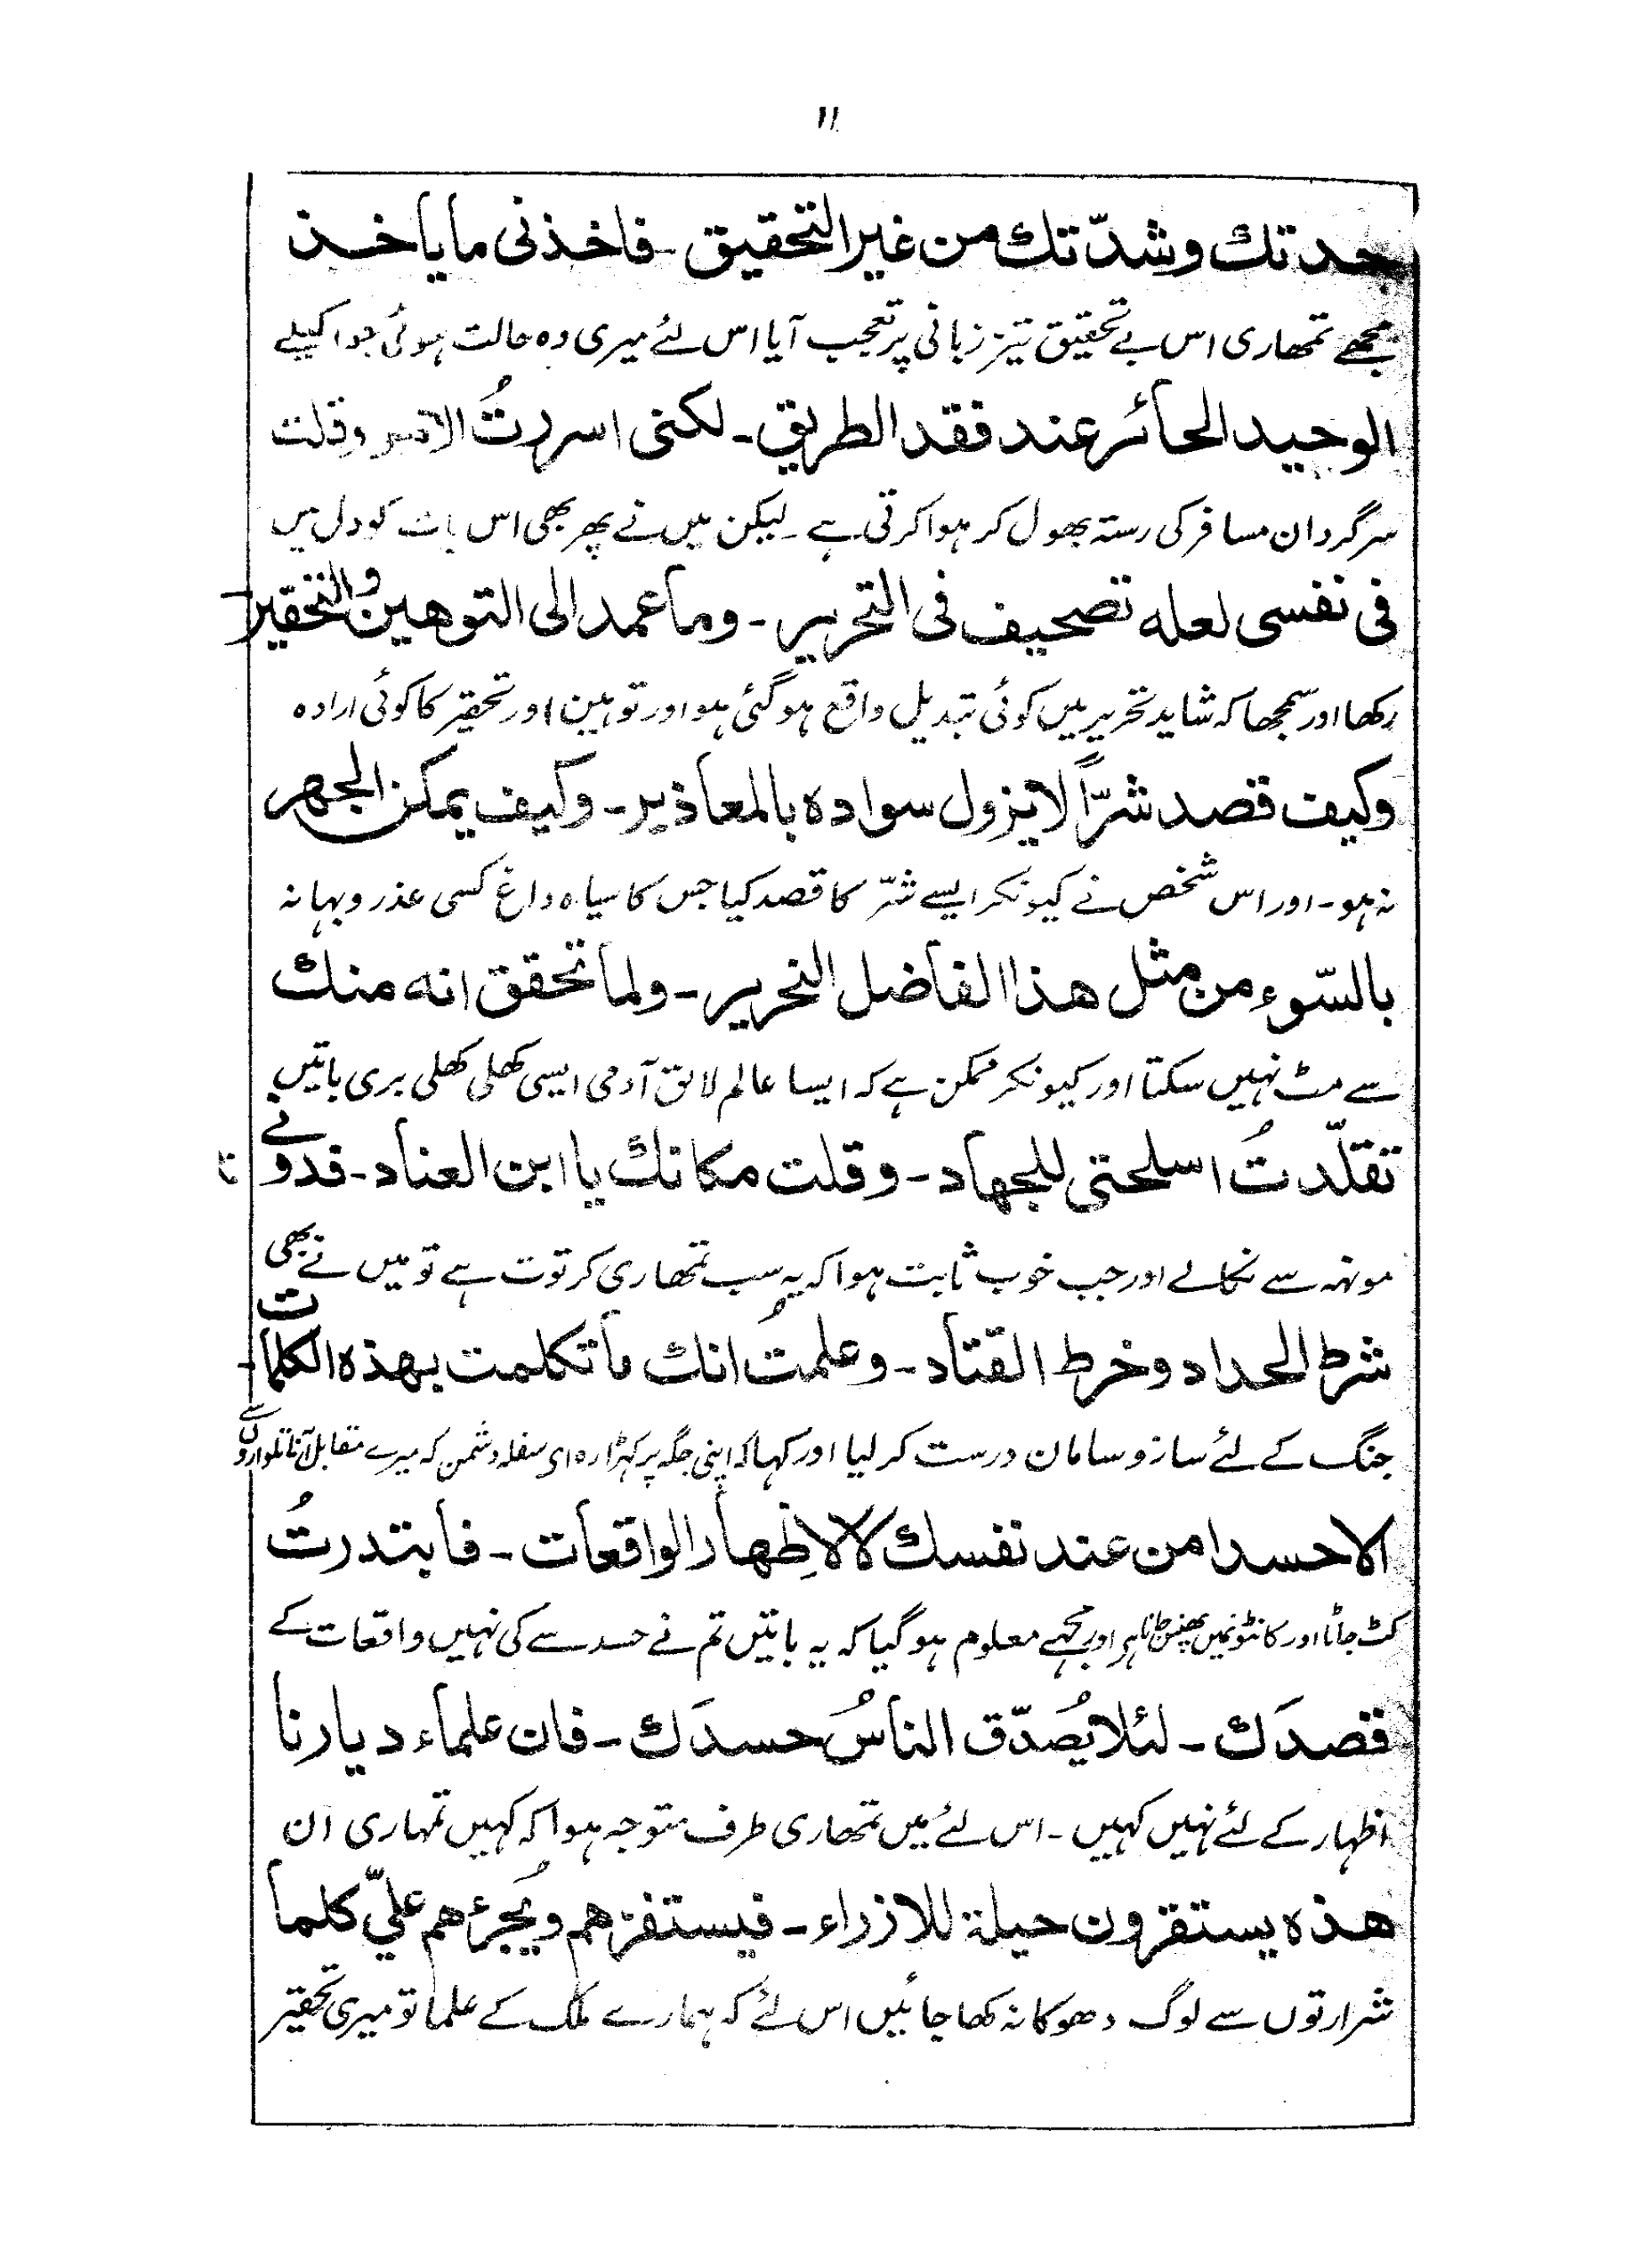 ۱۱
حدتك وشدّتك من غير التحقيق ـ فاخذنى ما ياخذ
مجھے تمھاری اس بے تحقیق تیز زبانی پر تعجب آیا اس لئے میری وہ حالت ہوئی جو اکیلے
الوحيد الحائر عند فقد الطريق ـ لكنى اسررتُ الامر وقلت
سرگردان مسافر کی رستہ بھول کر ہوا کرتی ہے ۔ لیکن میں نے پھر بھی اس بات کو دل میں
فى نفسى لعله تصحيف فى التحرير ـ وما عمد الى التوهين والتحقير ـ
رکھا اور سمجھا کہ شاید تحریر میں کوئی تبدیل واقع ہوگئی ہو اور توہین اور تحقیر کا کوئی ارادہ
وكيف قصد شرًّا لا يزول سواده بالمعاذير ـ وكيف يمكن الجهر
نہ ہو ۔ اور اس شخص نے کیونکر ایسے شرّ کا قصد کیا جس کا سیاہ داغ کسی عذر و بہانہ
بالسّوء من مثل هذا الفاضل النحرير ـ ولما تحقق انه منك
سے مٹ نہیں سکتا اور کیونکر ممکن ہے کہ ایسا عالم لائق آدمی ایسی کھلی کھلی بری باتیں
تقلّدتُ اسلحتى للجهاد ـ وقلت مكانك يا ابن العناد ـ فدونى
مونہہ سے نکالے اور جب خوب ثابت ہوا کہ یہ سب تمھاری کرتوت ہے تو میں نے بھی
شرط الحداد وخرط القتاد ـ وعلمتُ انك ما تكلمت بهذه الكلمات ـ
جنگ کے لئے سازو سامان درست کر لیا اور کہا کہ اپنی جگہ پر کہڑا رہ ای سفلہ دشمن کہ میرے مقابل آنا تلواروں سے
الا حسدا من عند نفسك لا لاِظهار الواقعات ـ فابتدرتُ
کٹ جانا اور کانٹونمیں پھنس جانا ہے اور مجہے معلوم ہو گیا کہ یہ باتیں تم نے حسد سے کی نہیں واقعات کے
قصدَك ـ لئلا يُصدّق الناسُ حسدَك ـ فان علماء ديارنا
اظہار کے لئے نہیں کہیں ۔ اس لئے میں تمھاری طرف متوجہ ہوا کہ کہیں تمہاری ان
هذه يستقرون حيلة للازراء ـ فيستفزهم ويُجرئهم علىّ كلما
شرارتوں سے لوگ دھوکا نہ کھا جائیں اس لئے کہ ہمارے ملک کے علما تو میری تحقیر